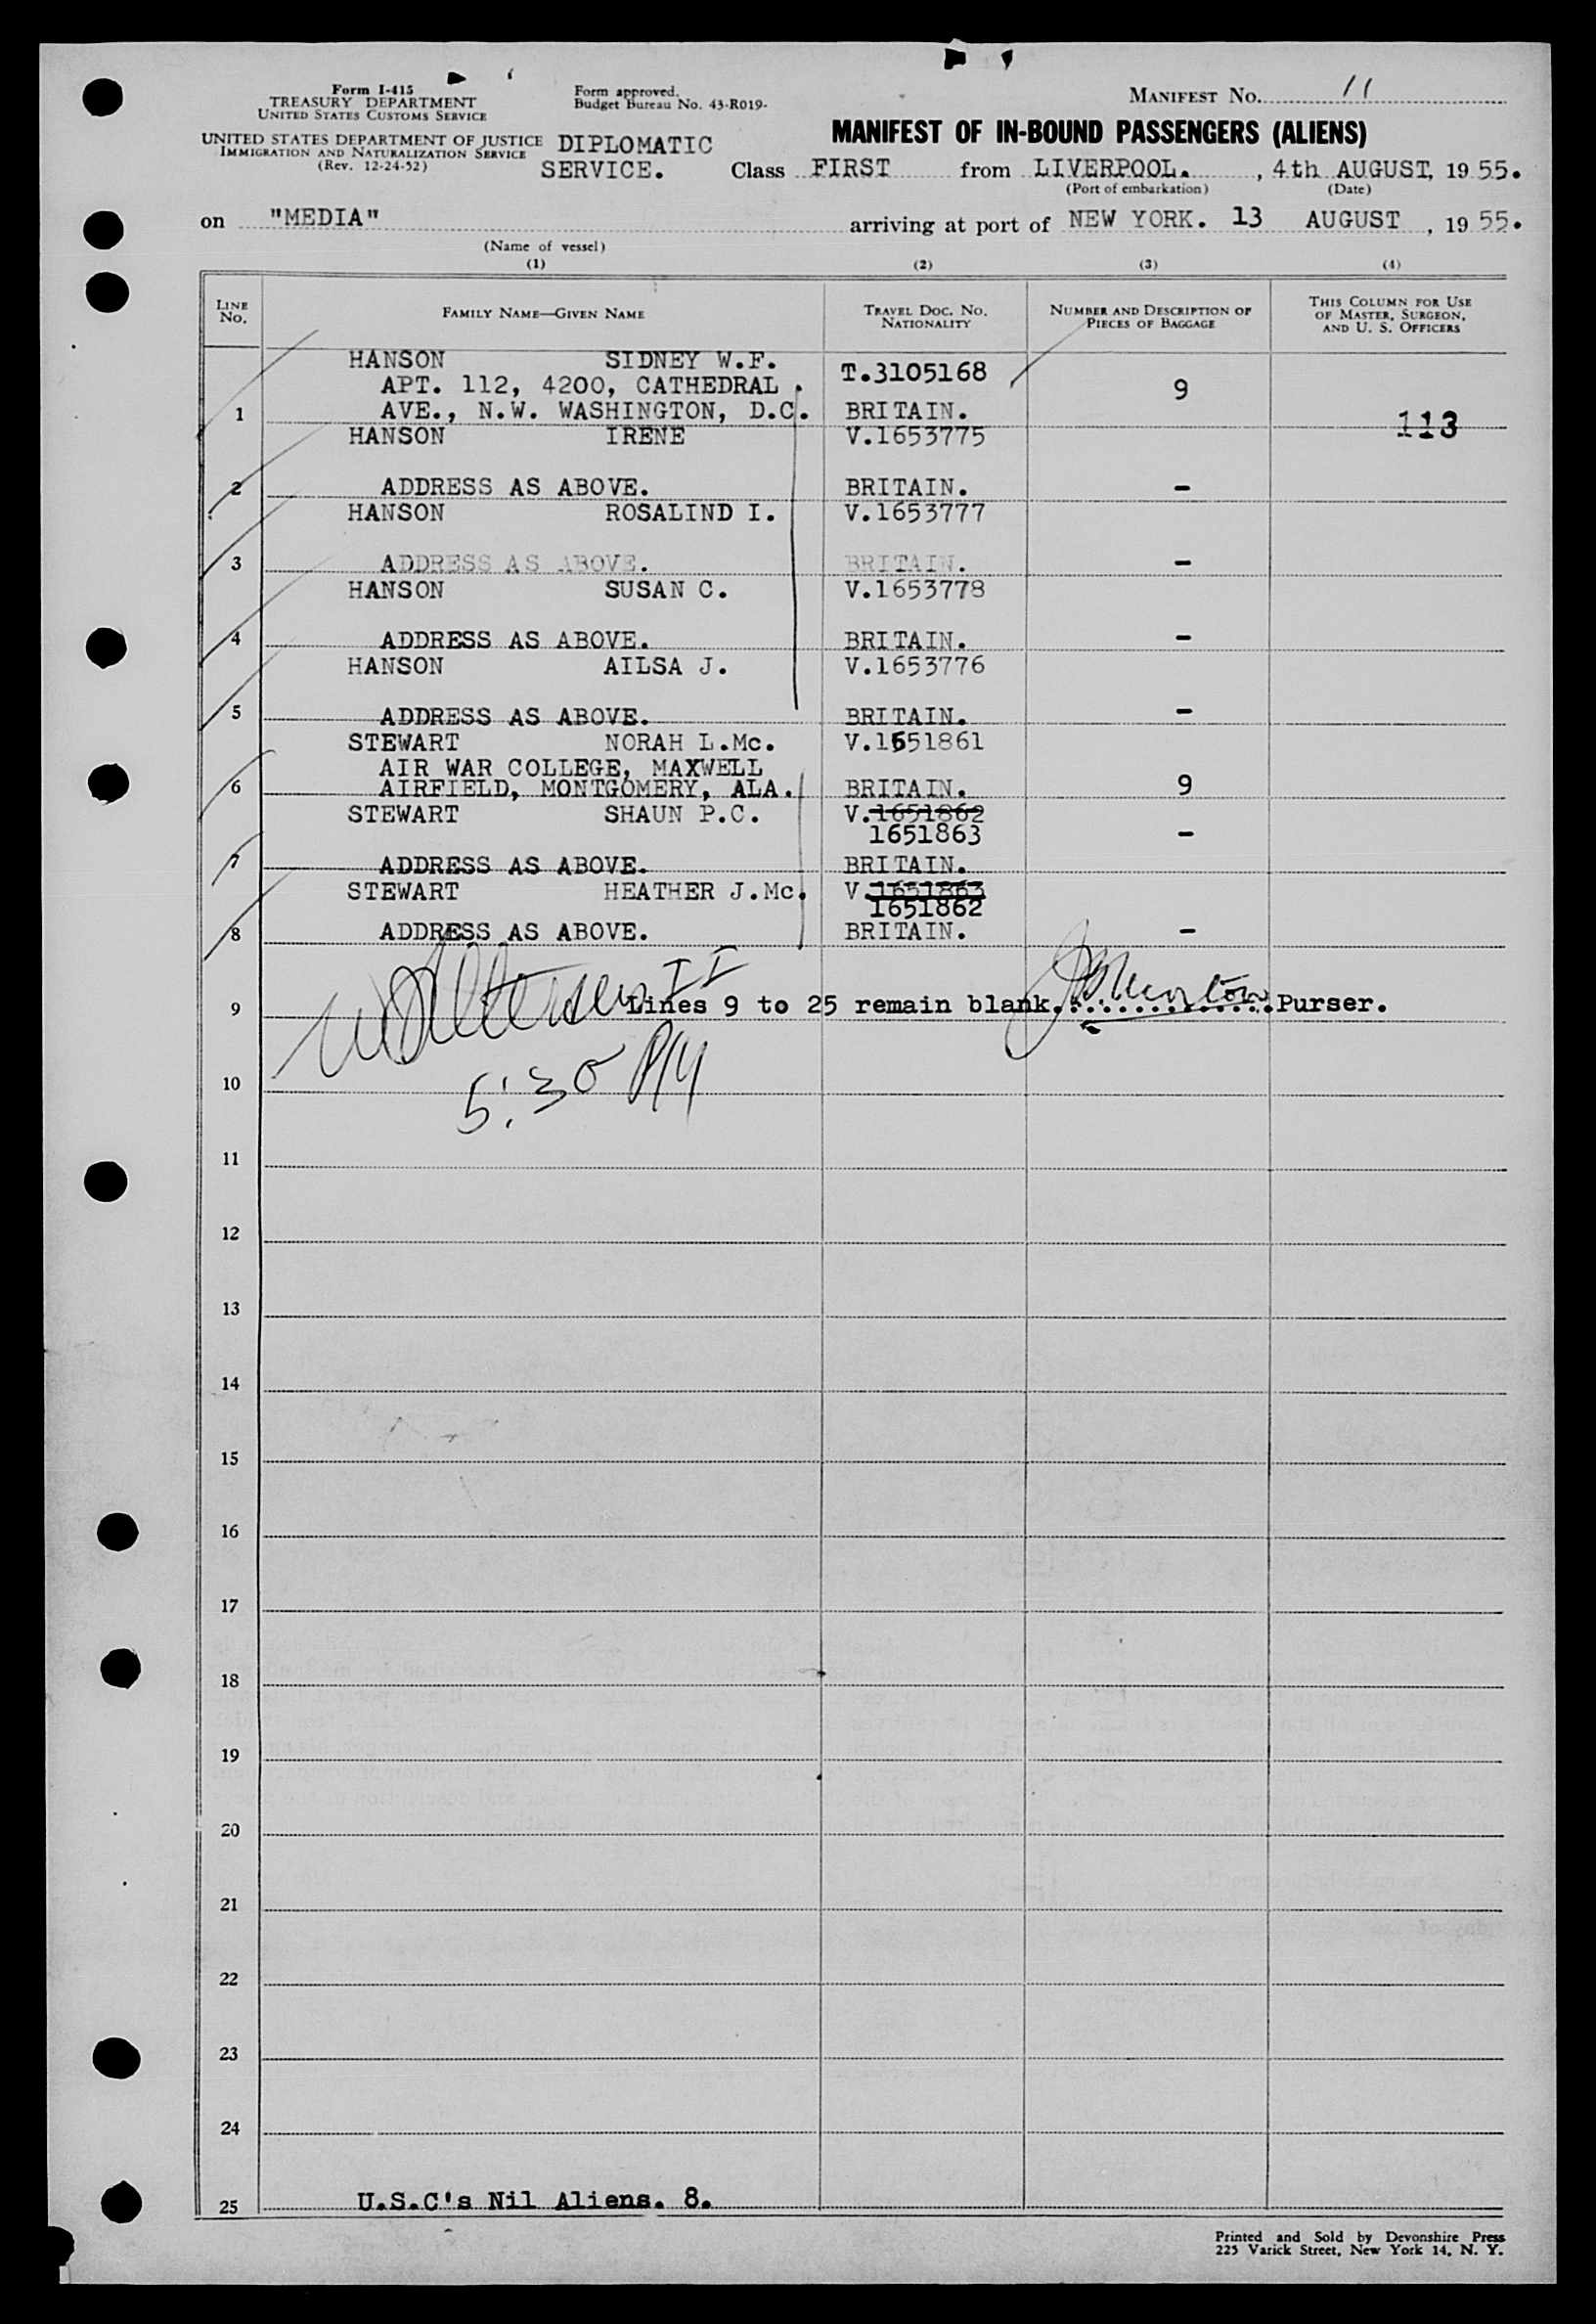 Form I-415
TREASURY DEPARTMENT
UNITED STATES CUSTOMS SERVICE
UNITED STATES DEPARTMENT OF JUSTICE
IMMIGRATION AND NATURALIZATION SERVICE
(Rev. 12-24-52)
Form approved.
Budget Bureau No. 43-R019-
DIPLOMATIC
SERVICE.
MANIFEST NO. 11
MANIFEST OF IN-BOUND PASSENGERS (ALIENS)
Class FIRST from LIVERPOOL. , 4th AUGUST, 19 55.
(Port of embarkation) (Date)
on "MEDIA" arriving at port of NEW YORK. 13 AUGUST , 19 55.
(Name of vessel)
(1) (2) (3) (4)
LINE NO.
FAMILY NAME—GIVEN NAME
TRAVEL DOC. NO.
NATIONALITY
NUMBER AND DESCRIPTION OF
PIECES OF BAGGAGE
THIS COLUMN FOR USE
OF MASTER, SURGEON,
AND U. S. OFFICERS
HANSON SIDNEY W.F. T.3105168
APT. 112, 4200, CATHEDRAL 9
1 AVE., N.W. WASHINGTON, D.C. BRITAIN. 113
HANSON IRENE V.1653775
2 ADDRESS AS ABOVE. BRITAIN. -
HANSON ROSALIND I. V.1653777
3 ADDRESS AS ABOVE. BRITAIN. -
HANSON SUSAN C. V.1653778
4 ADDRESS AS ABOVE. BRITAIN. -
HANSON AILSA J. V.1653776
5 ADDRESS AS ABOVE. BRITAIN. -
STEWART NORAH L.Mc. V.1651861
AIR WAR COLLEGE, MAXWELL
6 AIRFIELD, MONTGOMERY, ALA. BRITAIN. 9
STEWART SHAUN P.C. V.1651862
1651863 -
7 ADDRESS AS ABOVE. BRITAIN.
STEWART HEATHER J.Mc. V.1651863
1651862
8 ADDRESS AS ABOVE. BRITAIN. -
9 II Lines 9 to 25 remain blank. Purser.
5:30 PM
10
11
12
13
14
15
16
17
18
19
20
21
22
23
24
25 U.S.C's Nil Aliens. 8.
Printed and Sold by Devonshire Press
225 Varick Street, New York 14, N. Y.